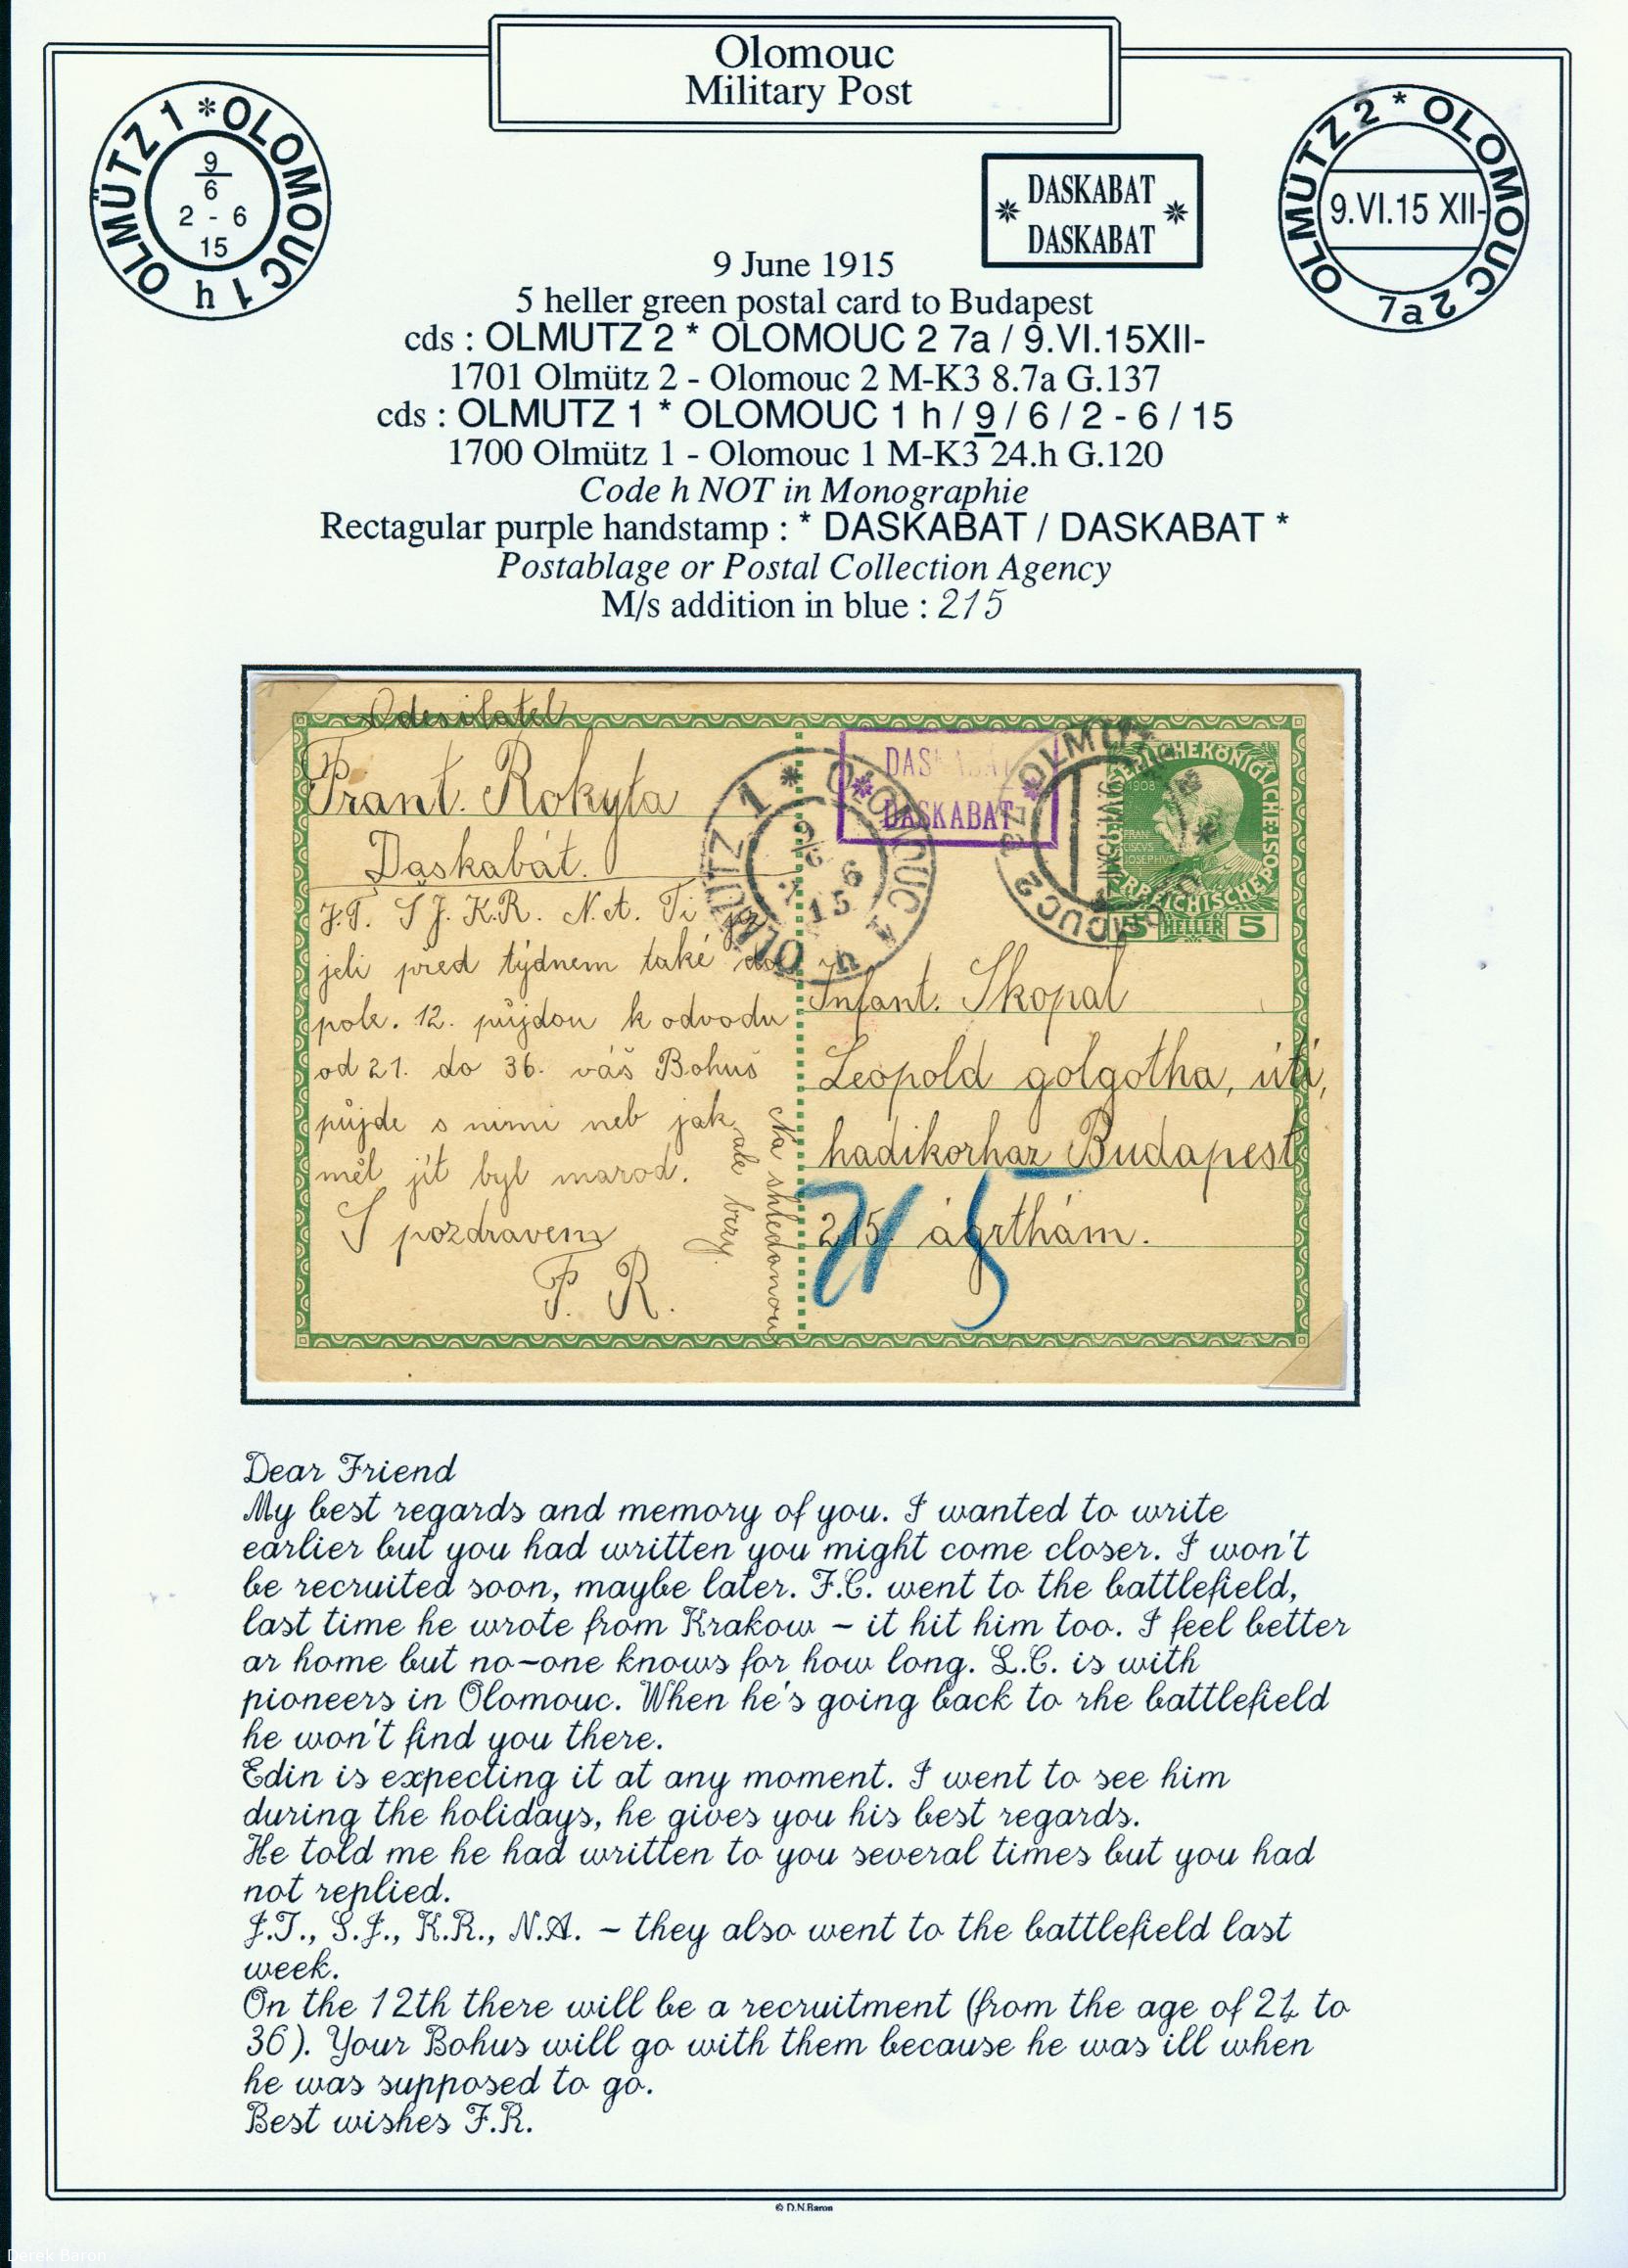 Olomouc
Military Post
OLMÜTZ 1 * OLOMOUC 1
9
6
2 - 6
15
h
* DASKABAT *
DASKABAT
OLMÜTZ 2 * OLOMOUC 2
9.VI.15 XII-
7a
9 June 1915
5 heller green postal card to Budapest
cds : OLMUTZ 2 * OLOMOUC 2 7a / 9.VI.15XII-
1701 Olmütz 2 - Olomouc 2 M-K3 8.7a G.137
cds : OLMUTZ 1 * OLOMOUC 1 h / 9 / 6 / 2 - 6 / 15
1700 Olmütz 1 - Olomouc 1 M-K3 24.h G.120
Code h NOT in Monographie
Rectagular purple handstamp : * DASKABAT / DASKABAT *
Postablage or Postal Collection Agency
M/s addition in blue : 215
Odesilatel
Frant. Rokyta
Daskabát.
J.T. S J. K.R. N.A. Ti
jeli před týdnem také do
pole. 12. půjdou k odvodu
od 21. do 36. váš Bohuš
půjde s nimi neb jak
měl jít byl marod.
S pozdravem
F. R.
Na shledanou
ale brzy.
OLMÜTZ 1 * OLOMOUC 1
9
6
6
15
h
DASKABAT
DASKABAT
1908
FRAN
CISCVS
JOSEPHVS
5 HELLER 5
Infant. Skopal
Leopold golgotha, úti,
hadikorhaz Budapest
215. ágrthám.
215
Dear Friend
My best regards and memory of you. I wanted to write
earlier but you had written you might come closer. I won't
be recruited soon, maybe later. F.C. went to the battlefield,
last time he wrote from Krakow - it hit him too. I feel better
ar home but no-one knows for how long. L.C. is with
pioneers in Olomouc. When he's going back to rhe battlefield
he won't find you there.
Edin is expecting it at any moment. I went to see him
during the holidays, he gives you his best regards.
He told me he had written to you several times but you had
not replied.
J.T., S.J., K.R., N.A. - they also went to the battlefield last
week.
On the 12th there will be a recruitment (from the age of 21 to
36). Your Bohus will go with them because he was ill when
he was supposed to go.
Best wishes F.R.
© D.N.Baron
Derek Baron